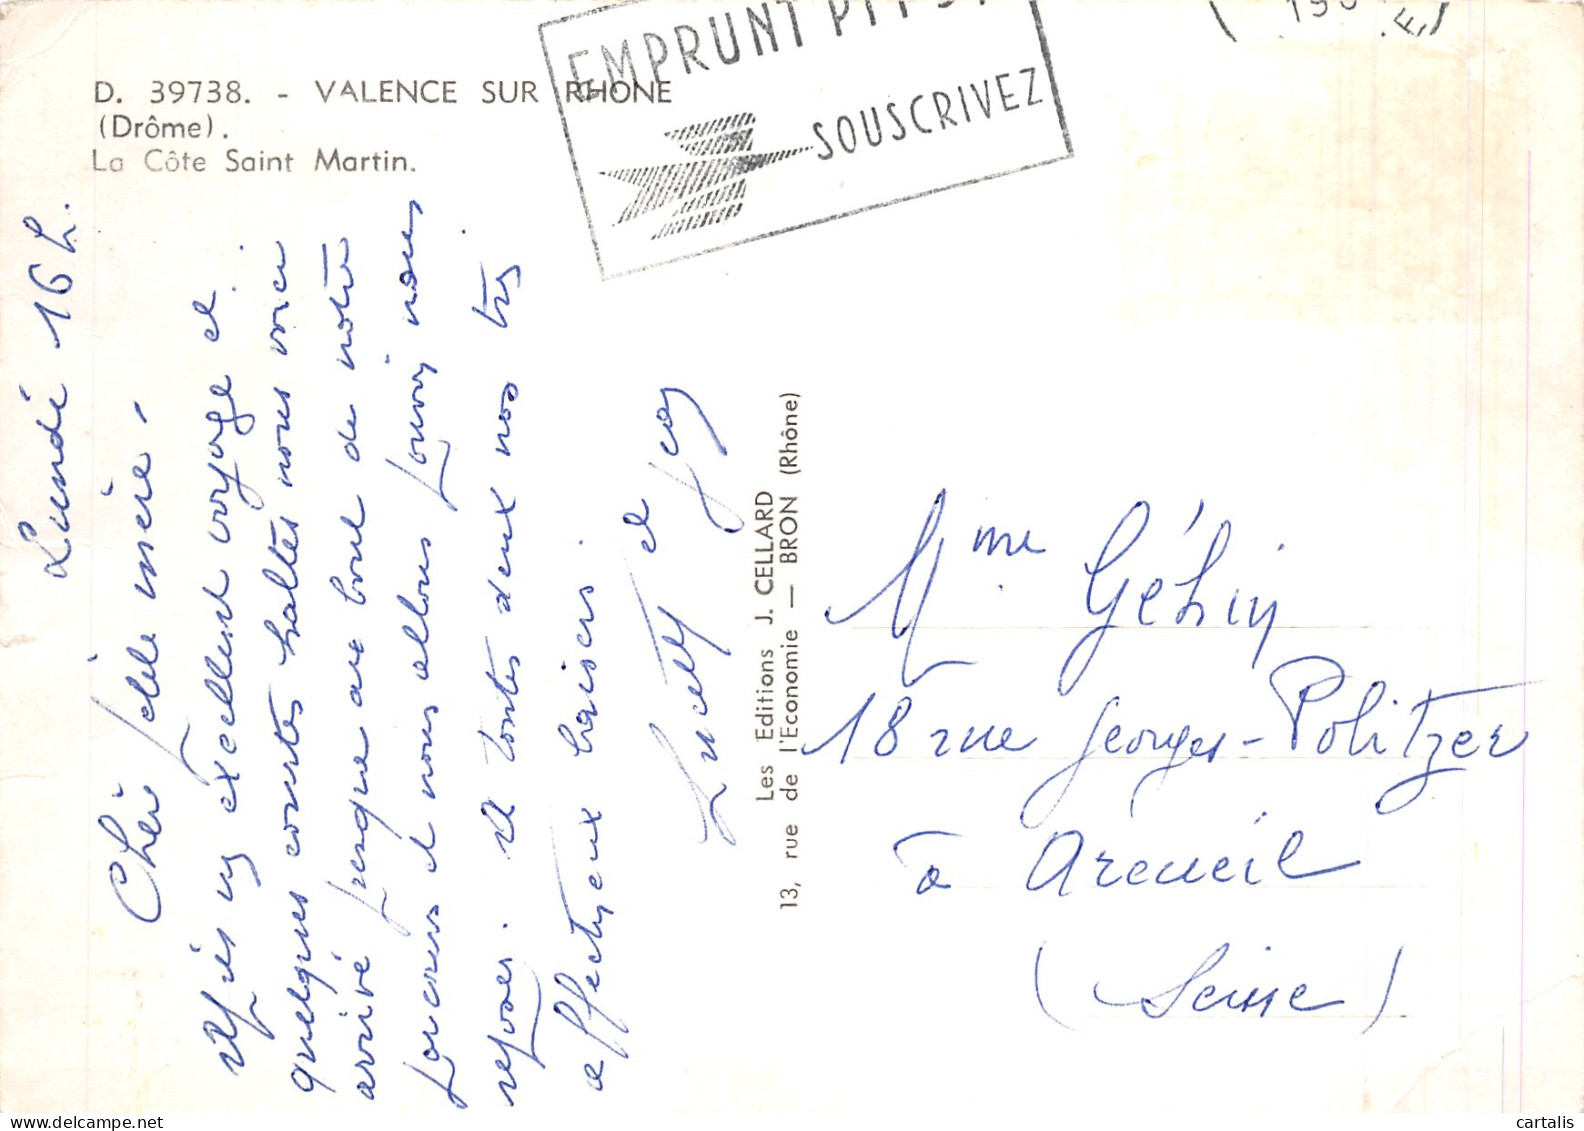 D. 39738. - VALENCE SUR RHONE
(Drôme).
La Côte Saint Martin.
EMPRUNT PTT
SOUSCRIVEZ
Lundi 16 h.
Chère mère,
après un excellent voyage et
quelques courtes haltes nous voici
arrivé jusque au bout de notre
parcours et nous allons pouvoir nous
reposer. A toutes deux nos très
affectueux baisers.
Lucette et
Les Editions J. CELLARD
13, rue de l'Economie — BRON (Rhône)
Mme Géhin
18 rue Georges-Politzer
à Arcueil
(Seine)